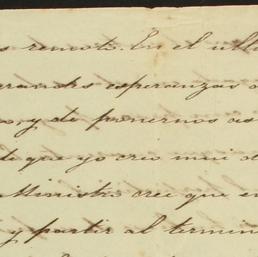 s remoto. En el ulti
grandes esperanzas d
o, y de ponernos as
de que yo creo mui d
Ministro cree que en
y partir al termin